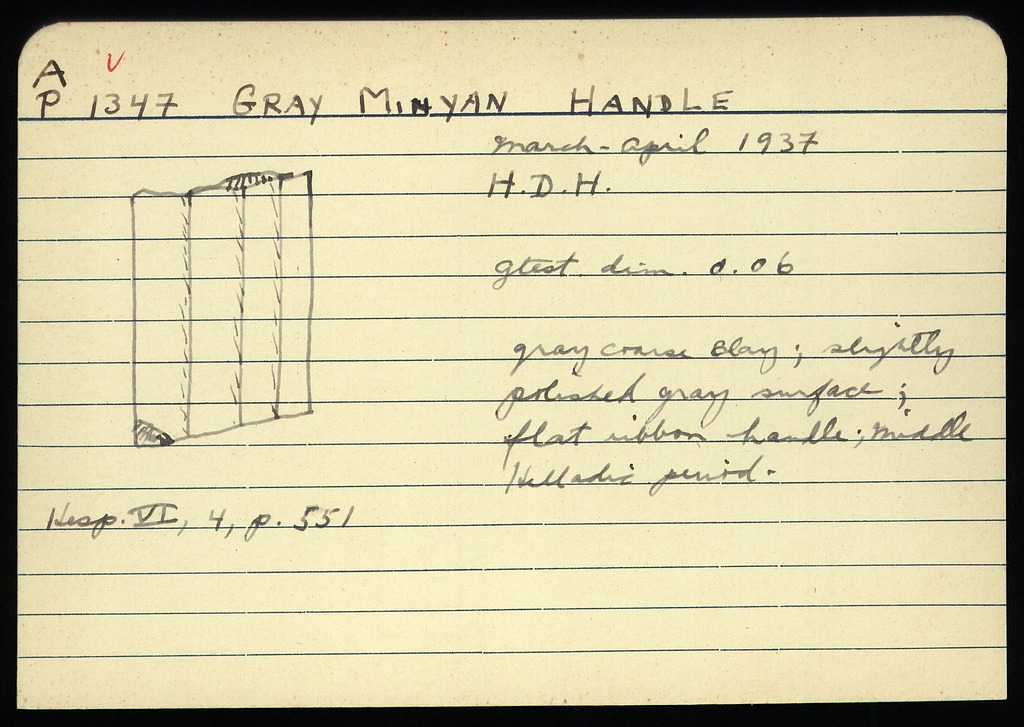 A
P 1347 GRAY MINYAN HANDLE
March-April 1937
H.D.H.
gtest. dim. 0.06
gray coarse clay; slightly
polished gray surface;
flat ribbon handle; Middle
Helladic period.
Hesp. VI, 4, p. 551